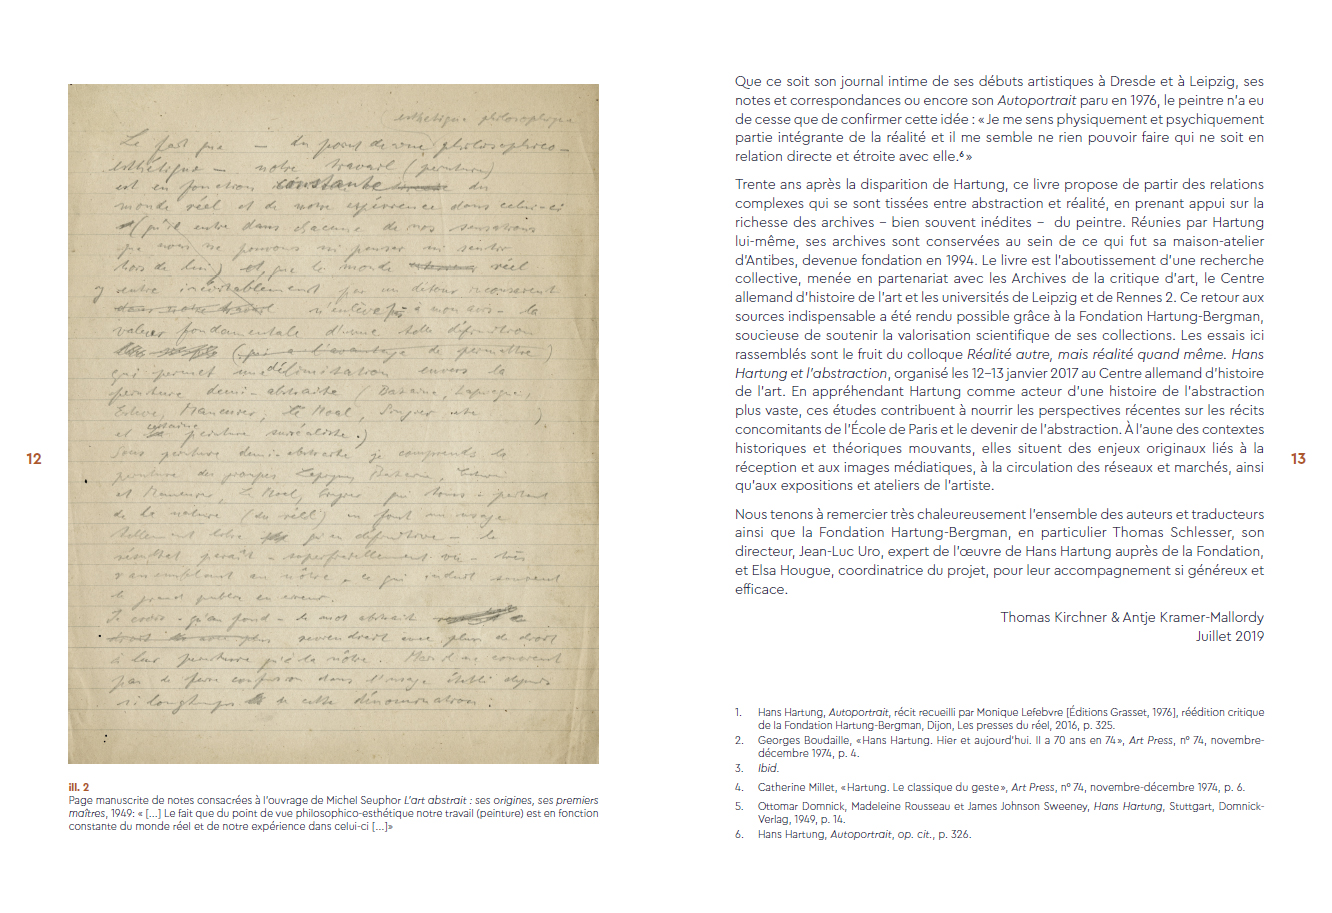 esthétique philosophique
Le fait que — du point de vue philosophico-
esthétique — notre travail (peinture)
est en fonction constante du
monde réel et de notre expérience dans celui-ci
(qu'il entre dans chacune de nos sensations
que nous ne pouvons ni penser ni sentir
hors de lui) et que le monde réel
y entre inévitablement par un détour inconscient
n'enlève pas à mon avis - la
valeur fondamentale d'une telle définition
(qui a l'avantage de permettre)
qui permet une délimitation envers la
peinture demi-abstraite (Bazaine, Lapicque,
Estève, Manessier, Le Moal, Singier etc )
et certaine peinture surréaliste.)
Sous peinture demi-abstraite je comprends la
peinture des groupes Lapicque, Bazaine, Estève
et Manessier, Le Moal, Singier qui tous - partant
de la nature (du réel) en font un usage
tellement libre qu'en définitive - le
résultat paraît - superficiellement vu - très
ressemblant au nôtre - ce qui induit souvent
le grand public en erreur.
Je crois - qu'au fond - le mot abstrait
reviendrait avec plus de droit
à leur peinture qu'à la nôtre. Mais il ne convient
pas de faire confusion dans l'usage établi depuis
si longtemps de cette dénomination.
12
ill. 2
Page manuscrite de notes consacrées à l'ouvrage de Michel Seuphor L'art abstrait : ses origines, ses premiers
maîtres, 1949: « [...] Le fait que du point de vue philosophico-esthétique notre travail (peinture) est en fonction
constante du monde réel et de notre expérience dans celui-ci [...]»
Que ce soit son journal intime de ses débuts artistiques à Dresde et à Leipzig, ses
notes et correspondances ou encore son Autoportrait paru en 1976, le peintre n'a eu
de cesse que de confirmer cette idée : « Je me sens physiquement et psychiquement
partie intégrante de la réalité et il me semble ne rien pouvoir faire qui ne soit en
relation directe et étroite avec elle.⁶ »
Trente ans après la disparition de Hartung, ce livre propose de partir des relations
complexes qui se sont tissées entre abstraction et réalité, en prenant appui sur la
richesse des archives – bien souvent inédites – du peintre. Réunies par Hartung
lui-même, ses archives sont conservées au sein de ce qui fut sa maison-atelier
d'Antibes, devenue fondation en 1994. Le livre est l'aboutissement d'une recherche
collective, menée en partenariat avec les Archives de la critique d'art, le Centre
allemand d'histoire de l'art et les universités de Leipzig et de Rennes 2. Ce retour aux
sources indispensable a été rendu possible grâce à la Fondation Hartung-Bergman,
soucieuse de soutenir la valorisation scientifique de ses collections. Les essais ici
rassemblés sont le fruit du colloque Réalité autre, mais réalité quand même. Hans
Hartung et l'abstraction, organisé les 12–13 janvier 2017 au Centre allemand d'histoire
de l'art. En appréhendant Hartung comme acteur d'une histoire de l'abstraction
plus vaste, ces études contribuent à nourrir les perspectives récentes sur les récits
concomitants de l'École de Paris et le devenir de l'abstraction. À l'aune des contextes
historiques et théoriques mouvants, elles situent des enjeux originaux liés à la
réception et aux images médiatiques, à la circulation des réseaux et marchés, ainsi
qu'aux expositions et ateliers de l'artiste.
Nous tenons à remercier très chaleureusement l'ensemble des auteurs et traducteurs
ainsi que la Fondation Hartung-Bergman, en particulier Thomas Schlesser, son
directeur, Jean-Luc Uro, expert de l'œuvre de Hans Hartung auprès de la Fondation,
et Elsa Hougue, coordinatrice du projet, pour leur accompagnement si généreux et
efficace.
Thomas Kirchner & Antje Kramer-Mallordy
Juillet 2019
1. Hans Hartung, Autoportrait, récit recueilli par Monique Lefebvre [Éditions Grasset, 1976], réédition critique
de la Fondation Hartung-Bergman, Dijon, Les presses du réel, 2016, p. 325.
2. Georges Boudaille, « Hans Hartung. Hier et aujourd'hui. Il a 70 ans en 74 », Art Press, nº 74, novembre-
décembre 1974, p. 4.
3. Ibid.
4. Catherine Millet, « Hartung. Le classique du geste », Art Press, nº 74, novembre-décembre 1974, p. 6.
5. Ottomar Domnick, Madeleine Rousseau et James Johnson Sweeney, Hans Hartung, Stuttgart, Domnick-
Verlag, 1949, p. 14.
6. Hans Hartung, Autoportrait, op. cit., p. 326.
13